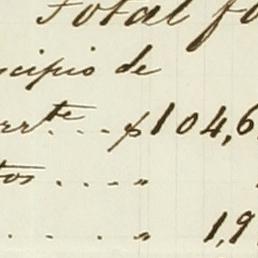 Total fo
ncipio de
rrte . . . $104,6
tos . . . . "
. . . . . " 1,9